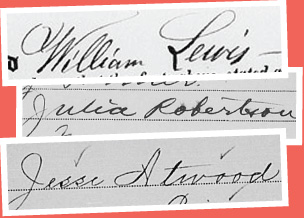 William Lewis
Julia Robertson
Jesse Atwood